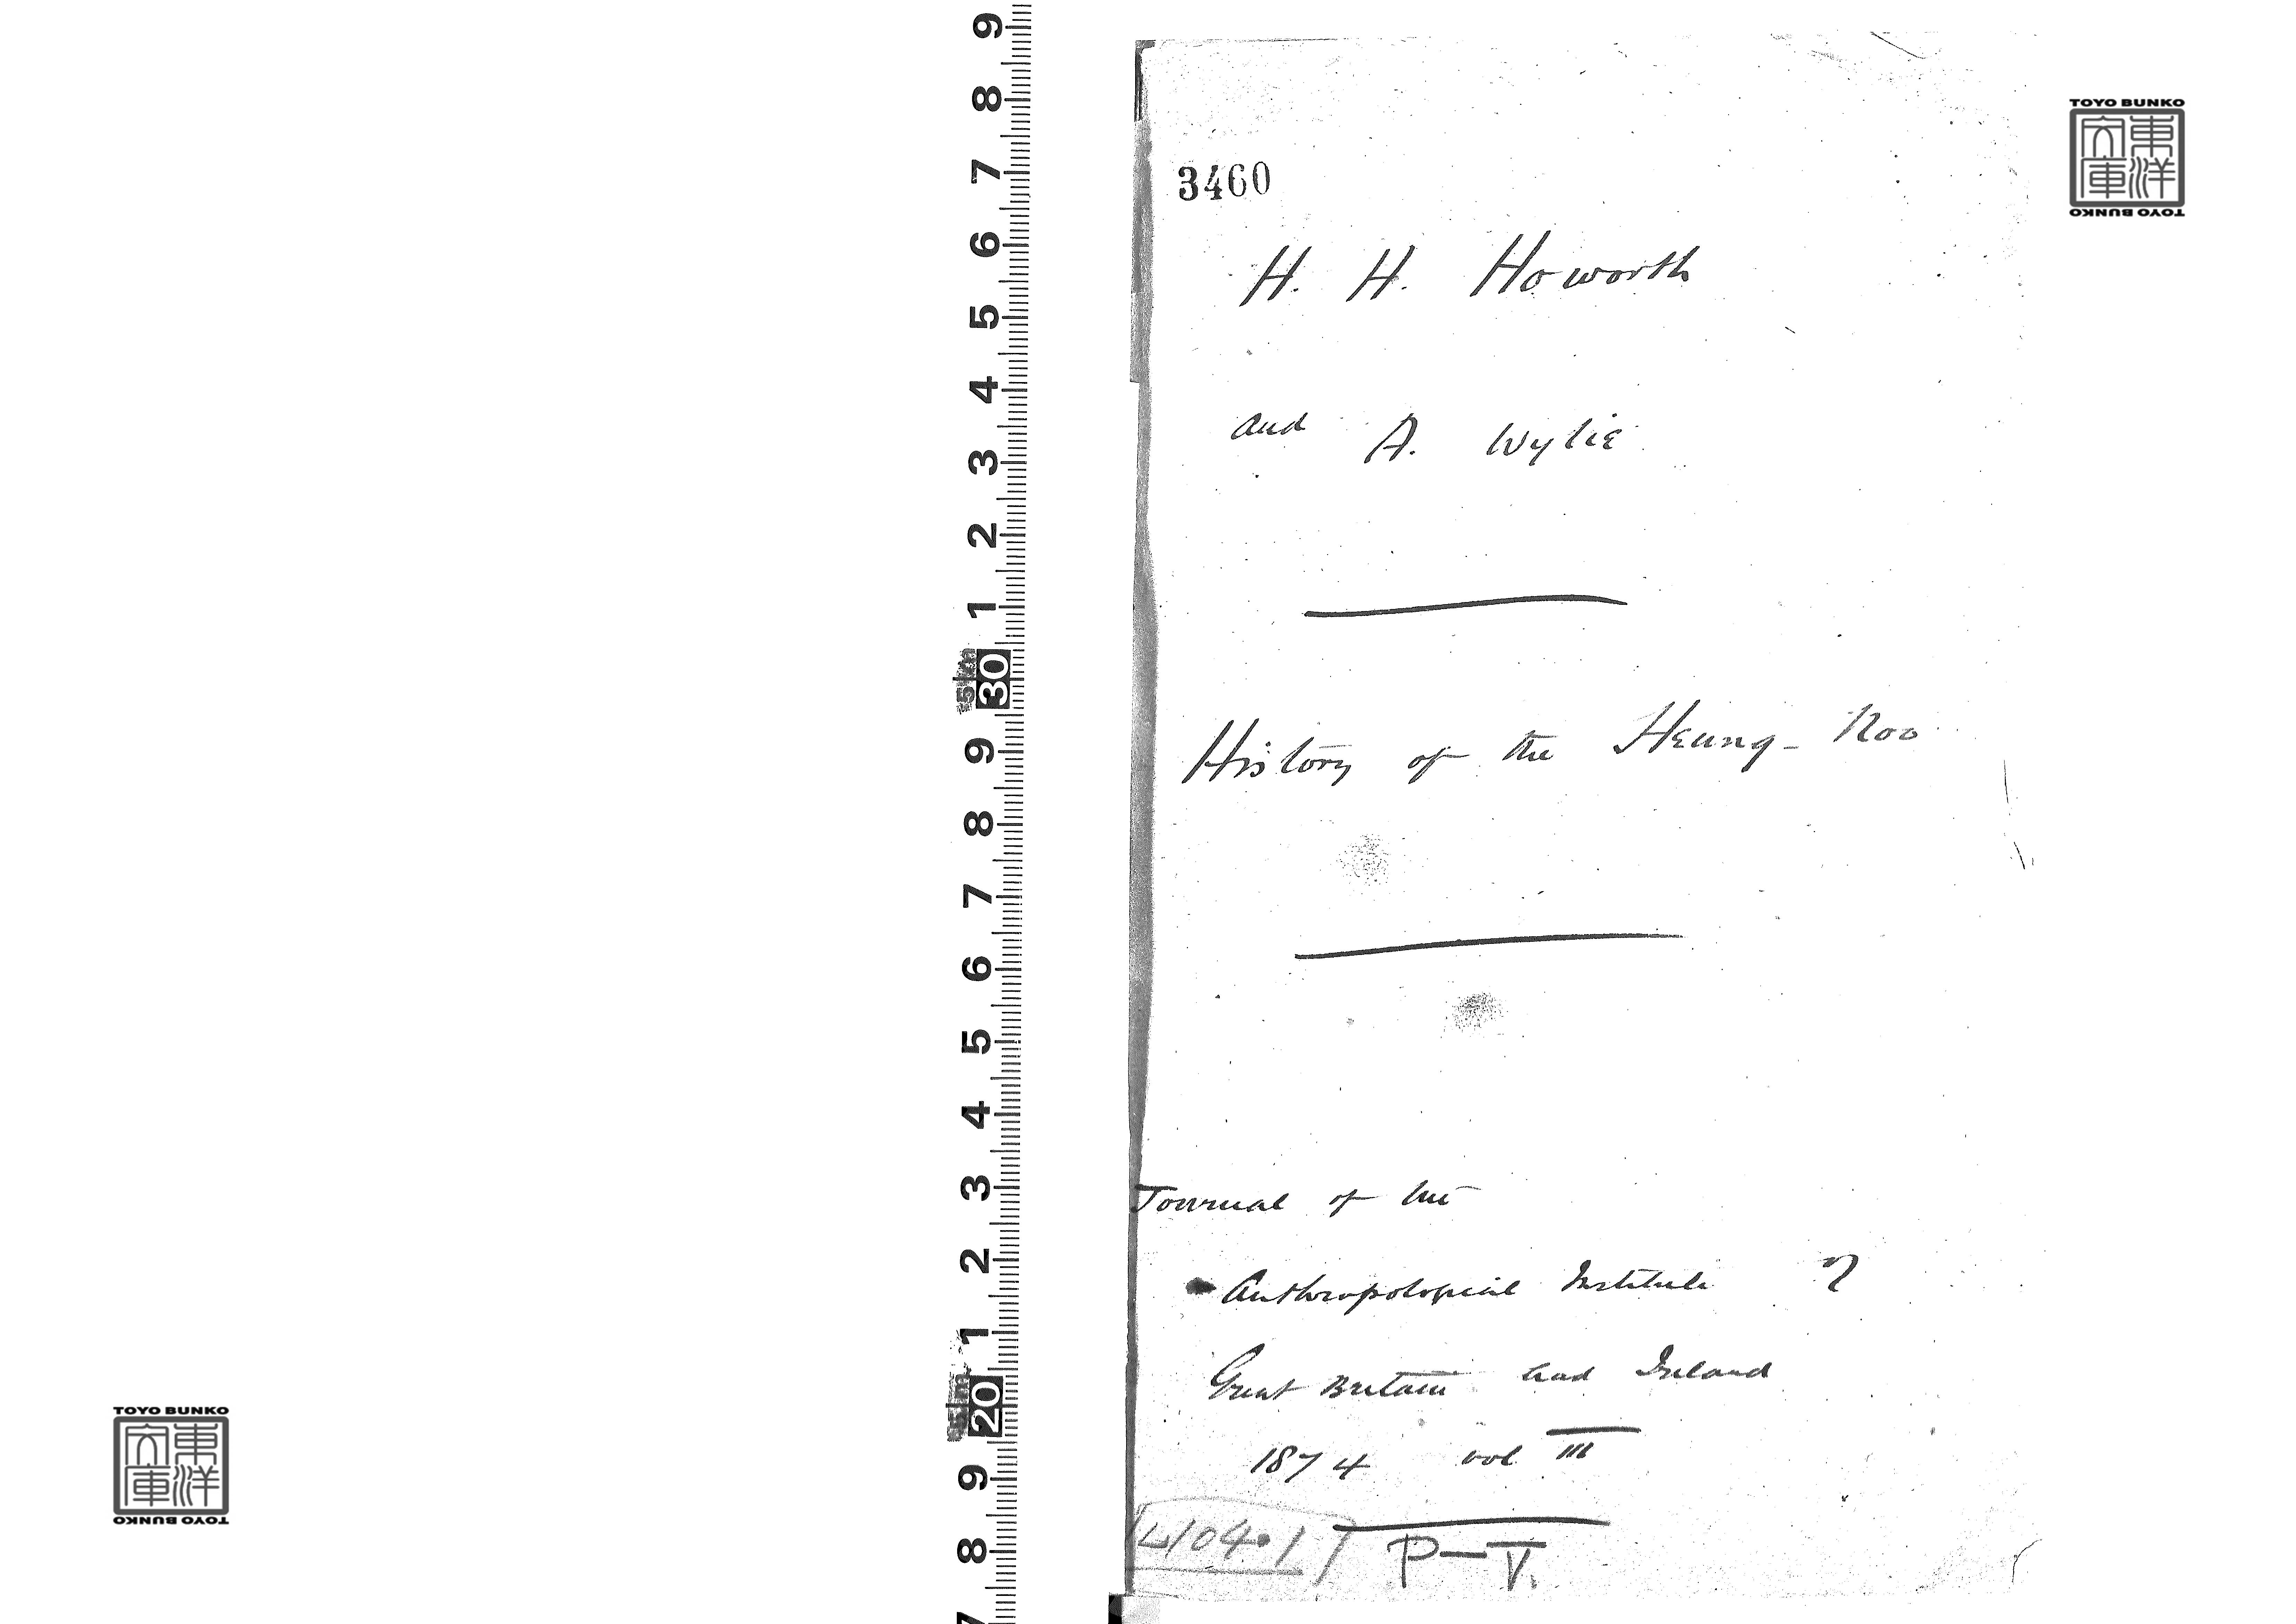 3460
H. H. Howorth
and A. Wylie
History of the Heung-Noo
Journal of the
Anthropological Institute of
Great Britain and Ireland
1874 vol III
P-V.
TOYO BUNKO
東洋文庫
TOYO BUNKO
TOYO BUNKO
東洋文庫
TOYO BUNKO
9
8
7
6
5
4
3
2
1
30
9
8
7
6
5
4
3
2
1
20
9
8
7